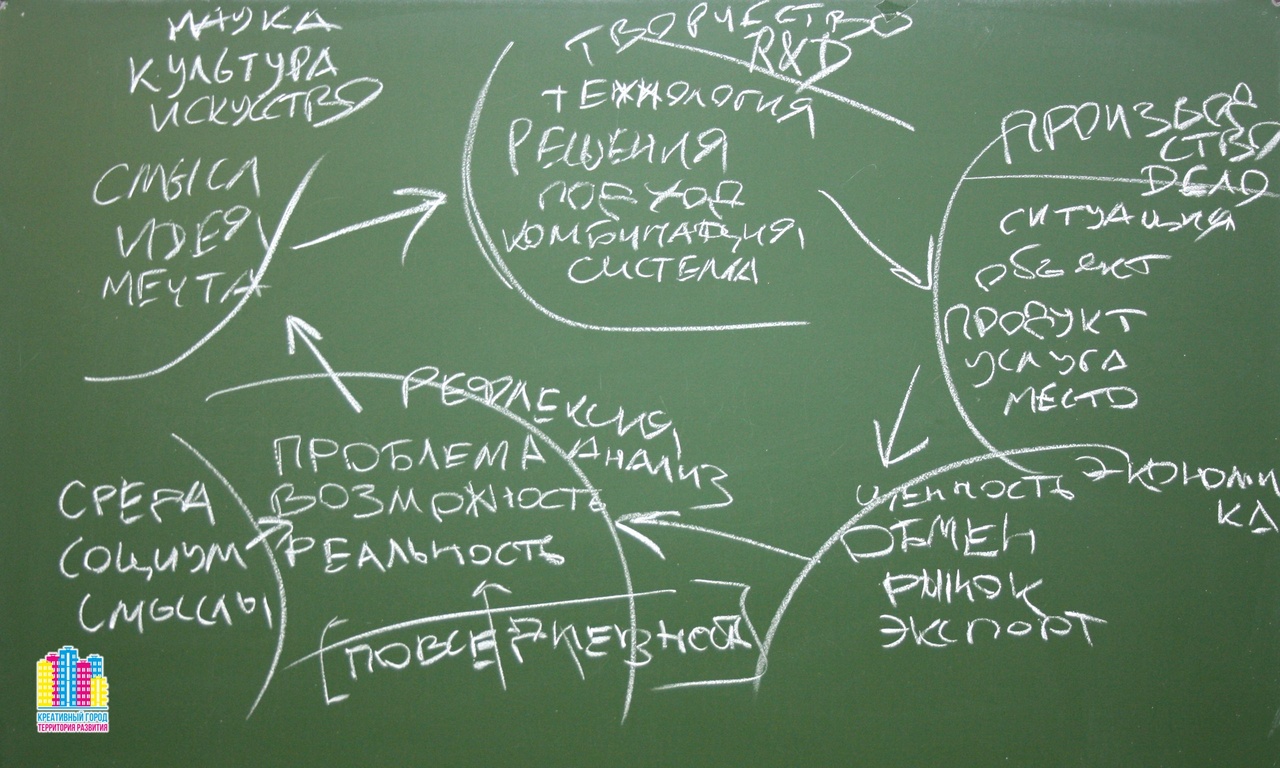 НАУКА
КУЛЬТУРА
ИСКУССТВО
СМЫСЛ
ИДЕЯ
МЕЧТА
ТВОРЧЕСТВО
R&D
ТЕХНОЛОГИЯ
РЕШЕНИЯ
ПОДХОД
КОМБИНАЦИЯ
СИСТЕМА
ПРОИЗВОД
СТВО
ДЕЛО
СИТУАЦИЯ
ОБЪЕКТ
ПРОДУКТ
УСЛУГА
МЕСТО
ЭКОНОМИ
КА
ЦЕННОСТЬ
ОБМЕН
РЫНОК
ЭКСПОРТ
РЕФЛЕКСИЯ
АНАЛИЗ
ПРОБЛЕМА
ВОЗМОЖНОСТЬ
РЕАЛЬНОСТЬ
СРЕДА
СОЦИУМ
СМЫСЛЫ
КРЕАТИВНЫЙ ГОРОД
ТЕРРИТОРИЯ РАЗВИТИЯ